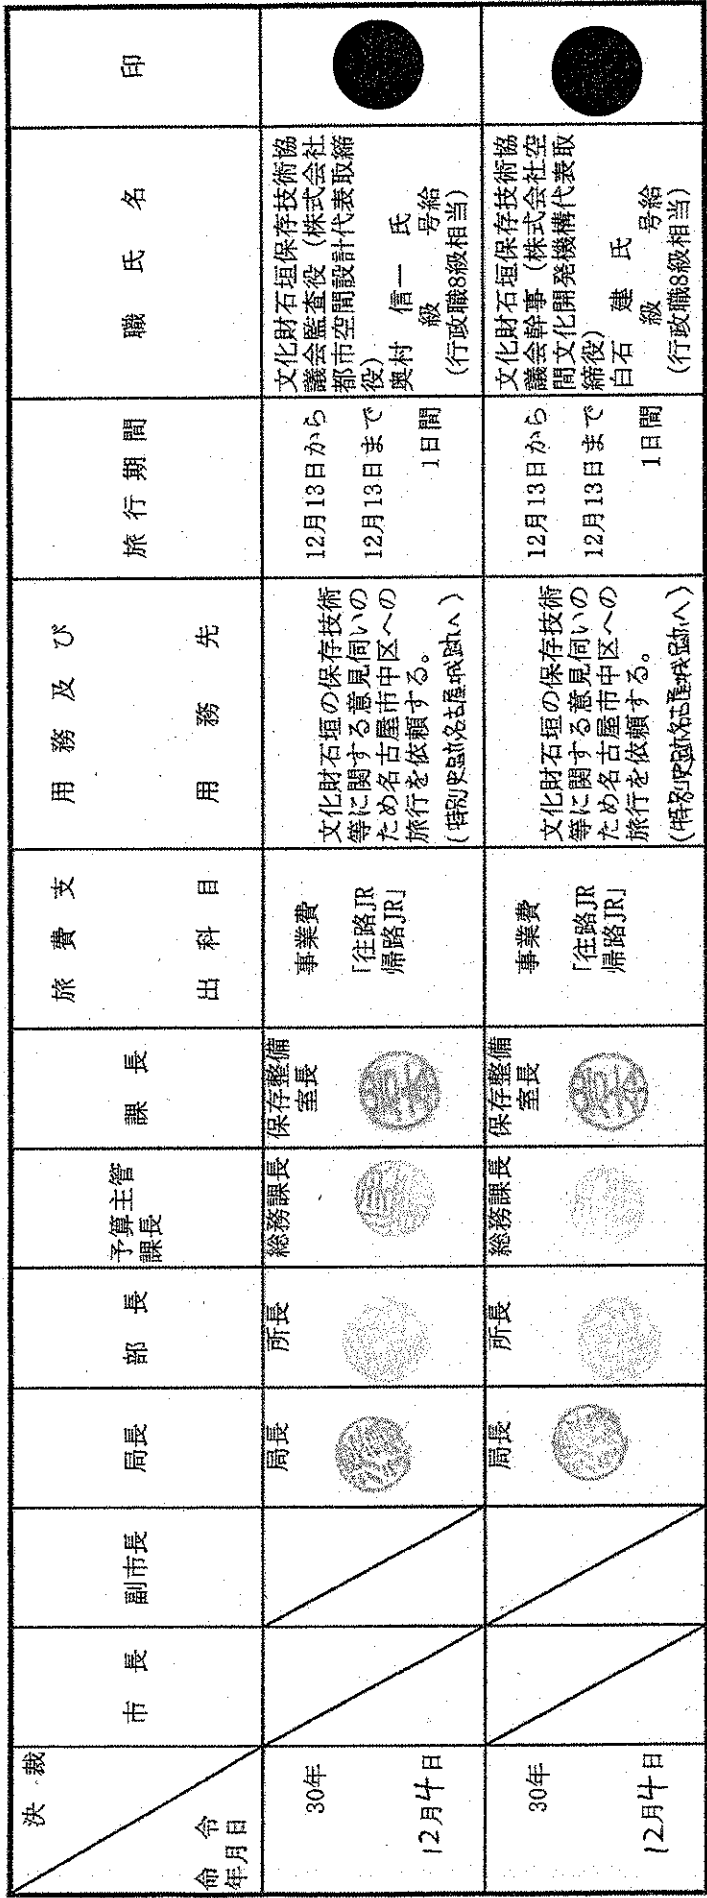 決裁
命令
年月日
市長
副市長
局長
部長
予算主管
課長
課長
旅費支
出科目
用務及び
用務先
旅行期間
職氏名
印
30年
12月4日
局長
所長
総務課長
保存整備
室長
事業費
「往路JR
帰路JR」
文化財石垣の保存技術
等に関する意見伺いの
ため名古屋市中区への
旅行を依頼する。
(特別史跡名古屋城跡へ)
12月13日から
12月13日まで
1日間
文化財石垣保存技術協
議会監査役(株式会社
都市空間設計代表取締
役)
奥村 信一 氏
級 号給
(行政職8級相当)
30年
12月4日
局長
所長
総務課長
保存整備
室長
事業費
「往路JR
帰路JR」
文化財石垣の保存技術
等に関する意見伺いの
ため名古屋市中区への
旅行を依頼する。
(特別史跡名古屋城跡へ)
12月13日から
12月13日まで
1日間
文化財石垣保存技術協
議会幹事(株式会社空
間文化開発機構代表取
締役)
白石 建 氏
級 号給
(行政職8級相当)